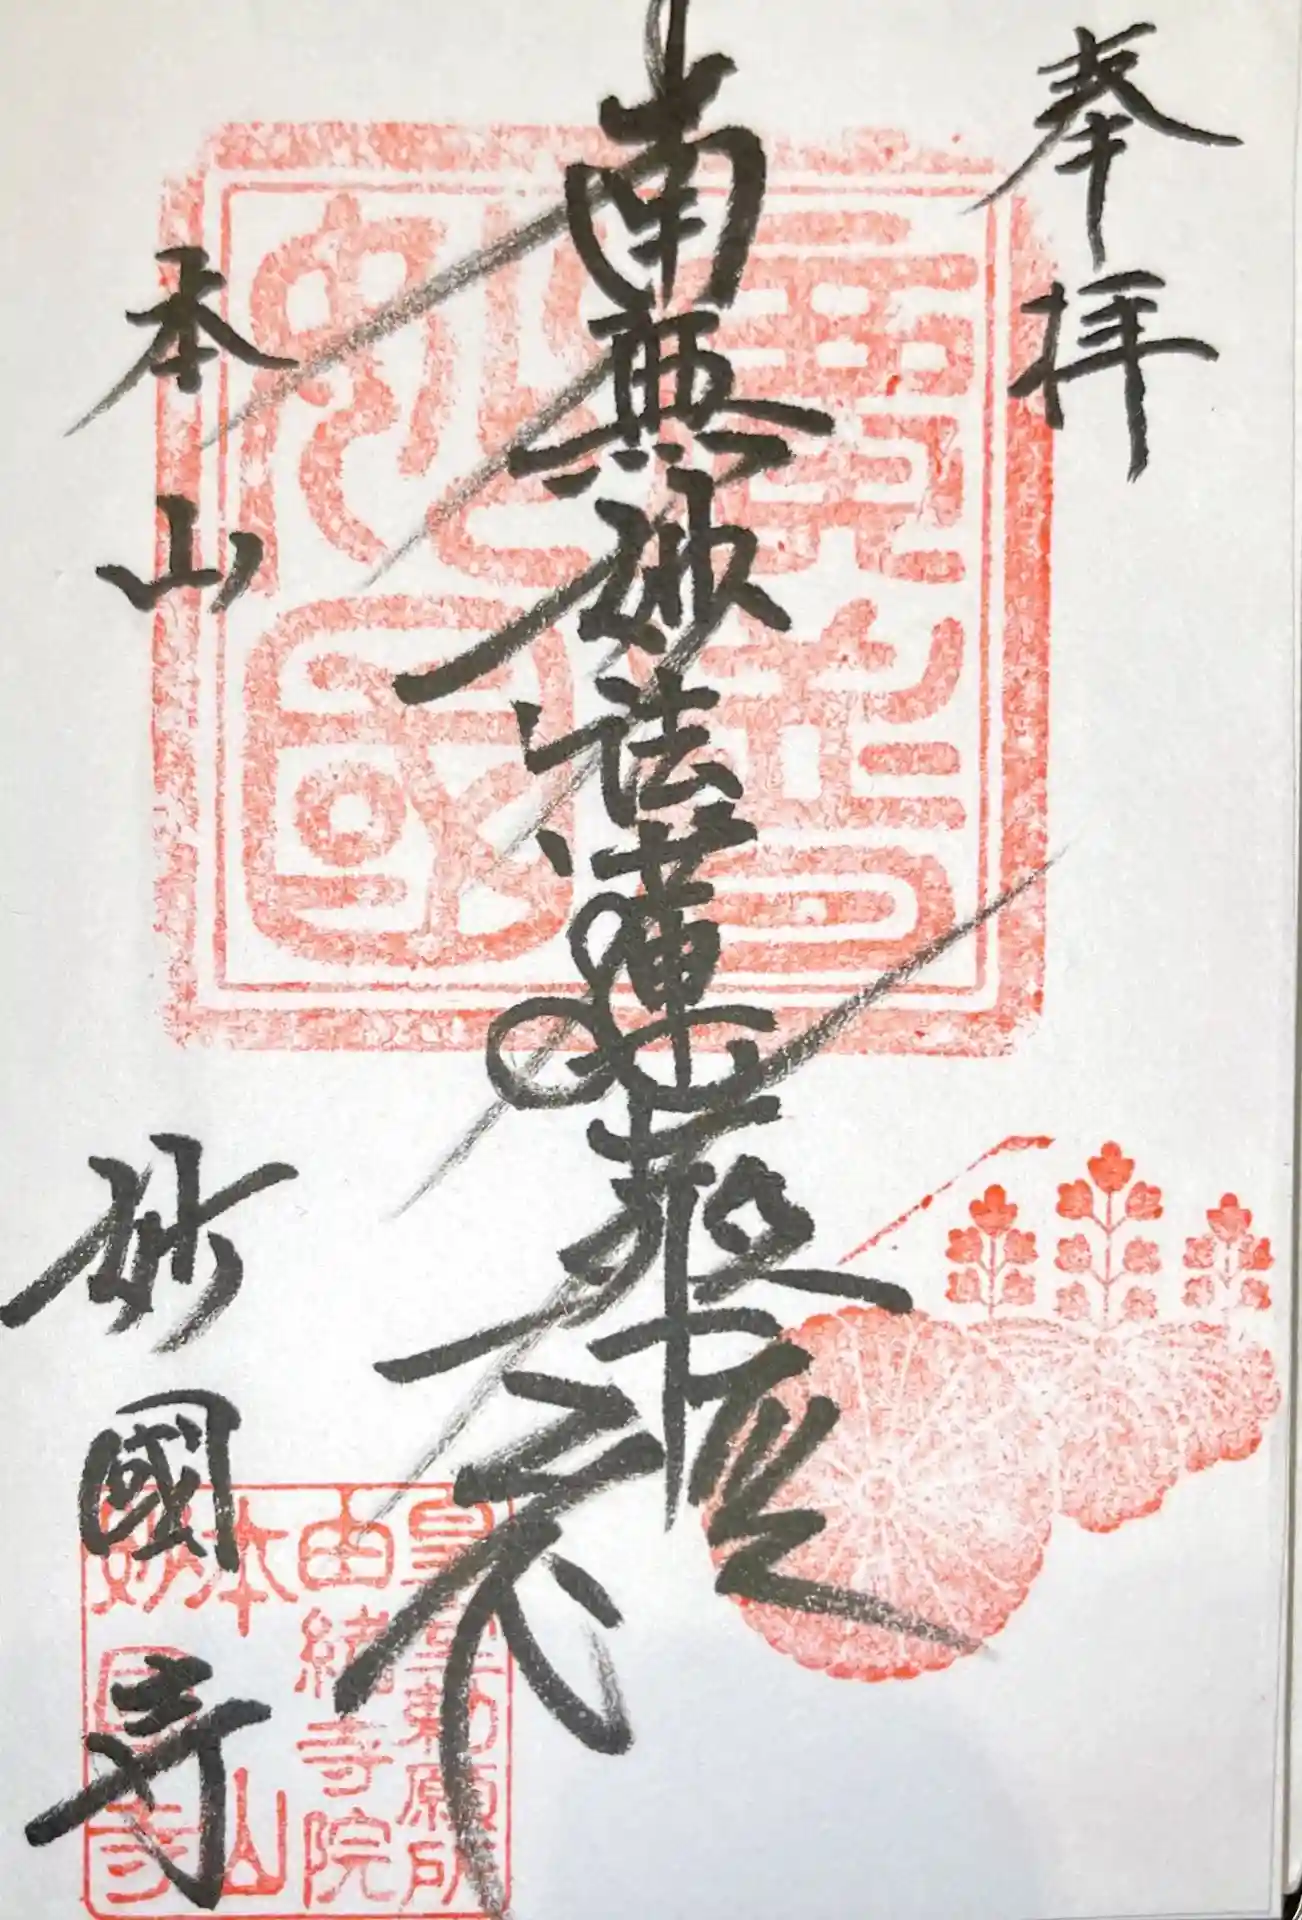 奉拝
南無妙法蓮華経
本山
妙國寺
皇室勅願所
由緒寺院
本山
妙國寺